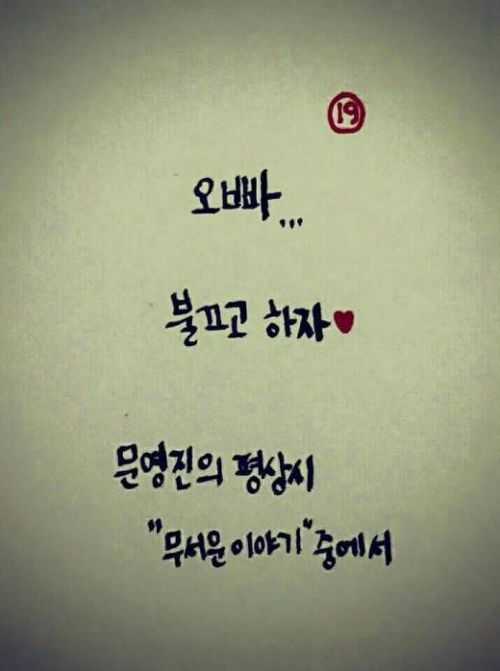 19
오빠...
불끄고 하자♥
문영진의 평상시
"무서운이야기"중에서